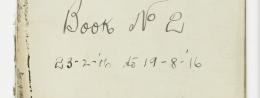 Book No 2
23-2-'16 to 19-8-'16